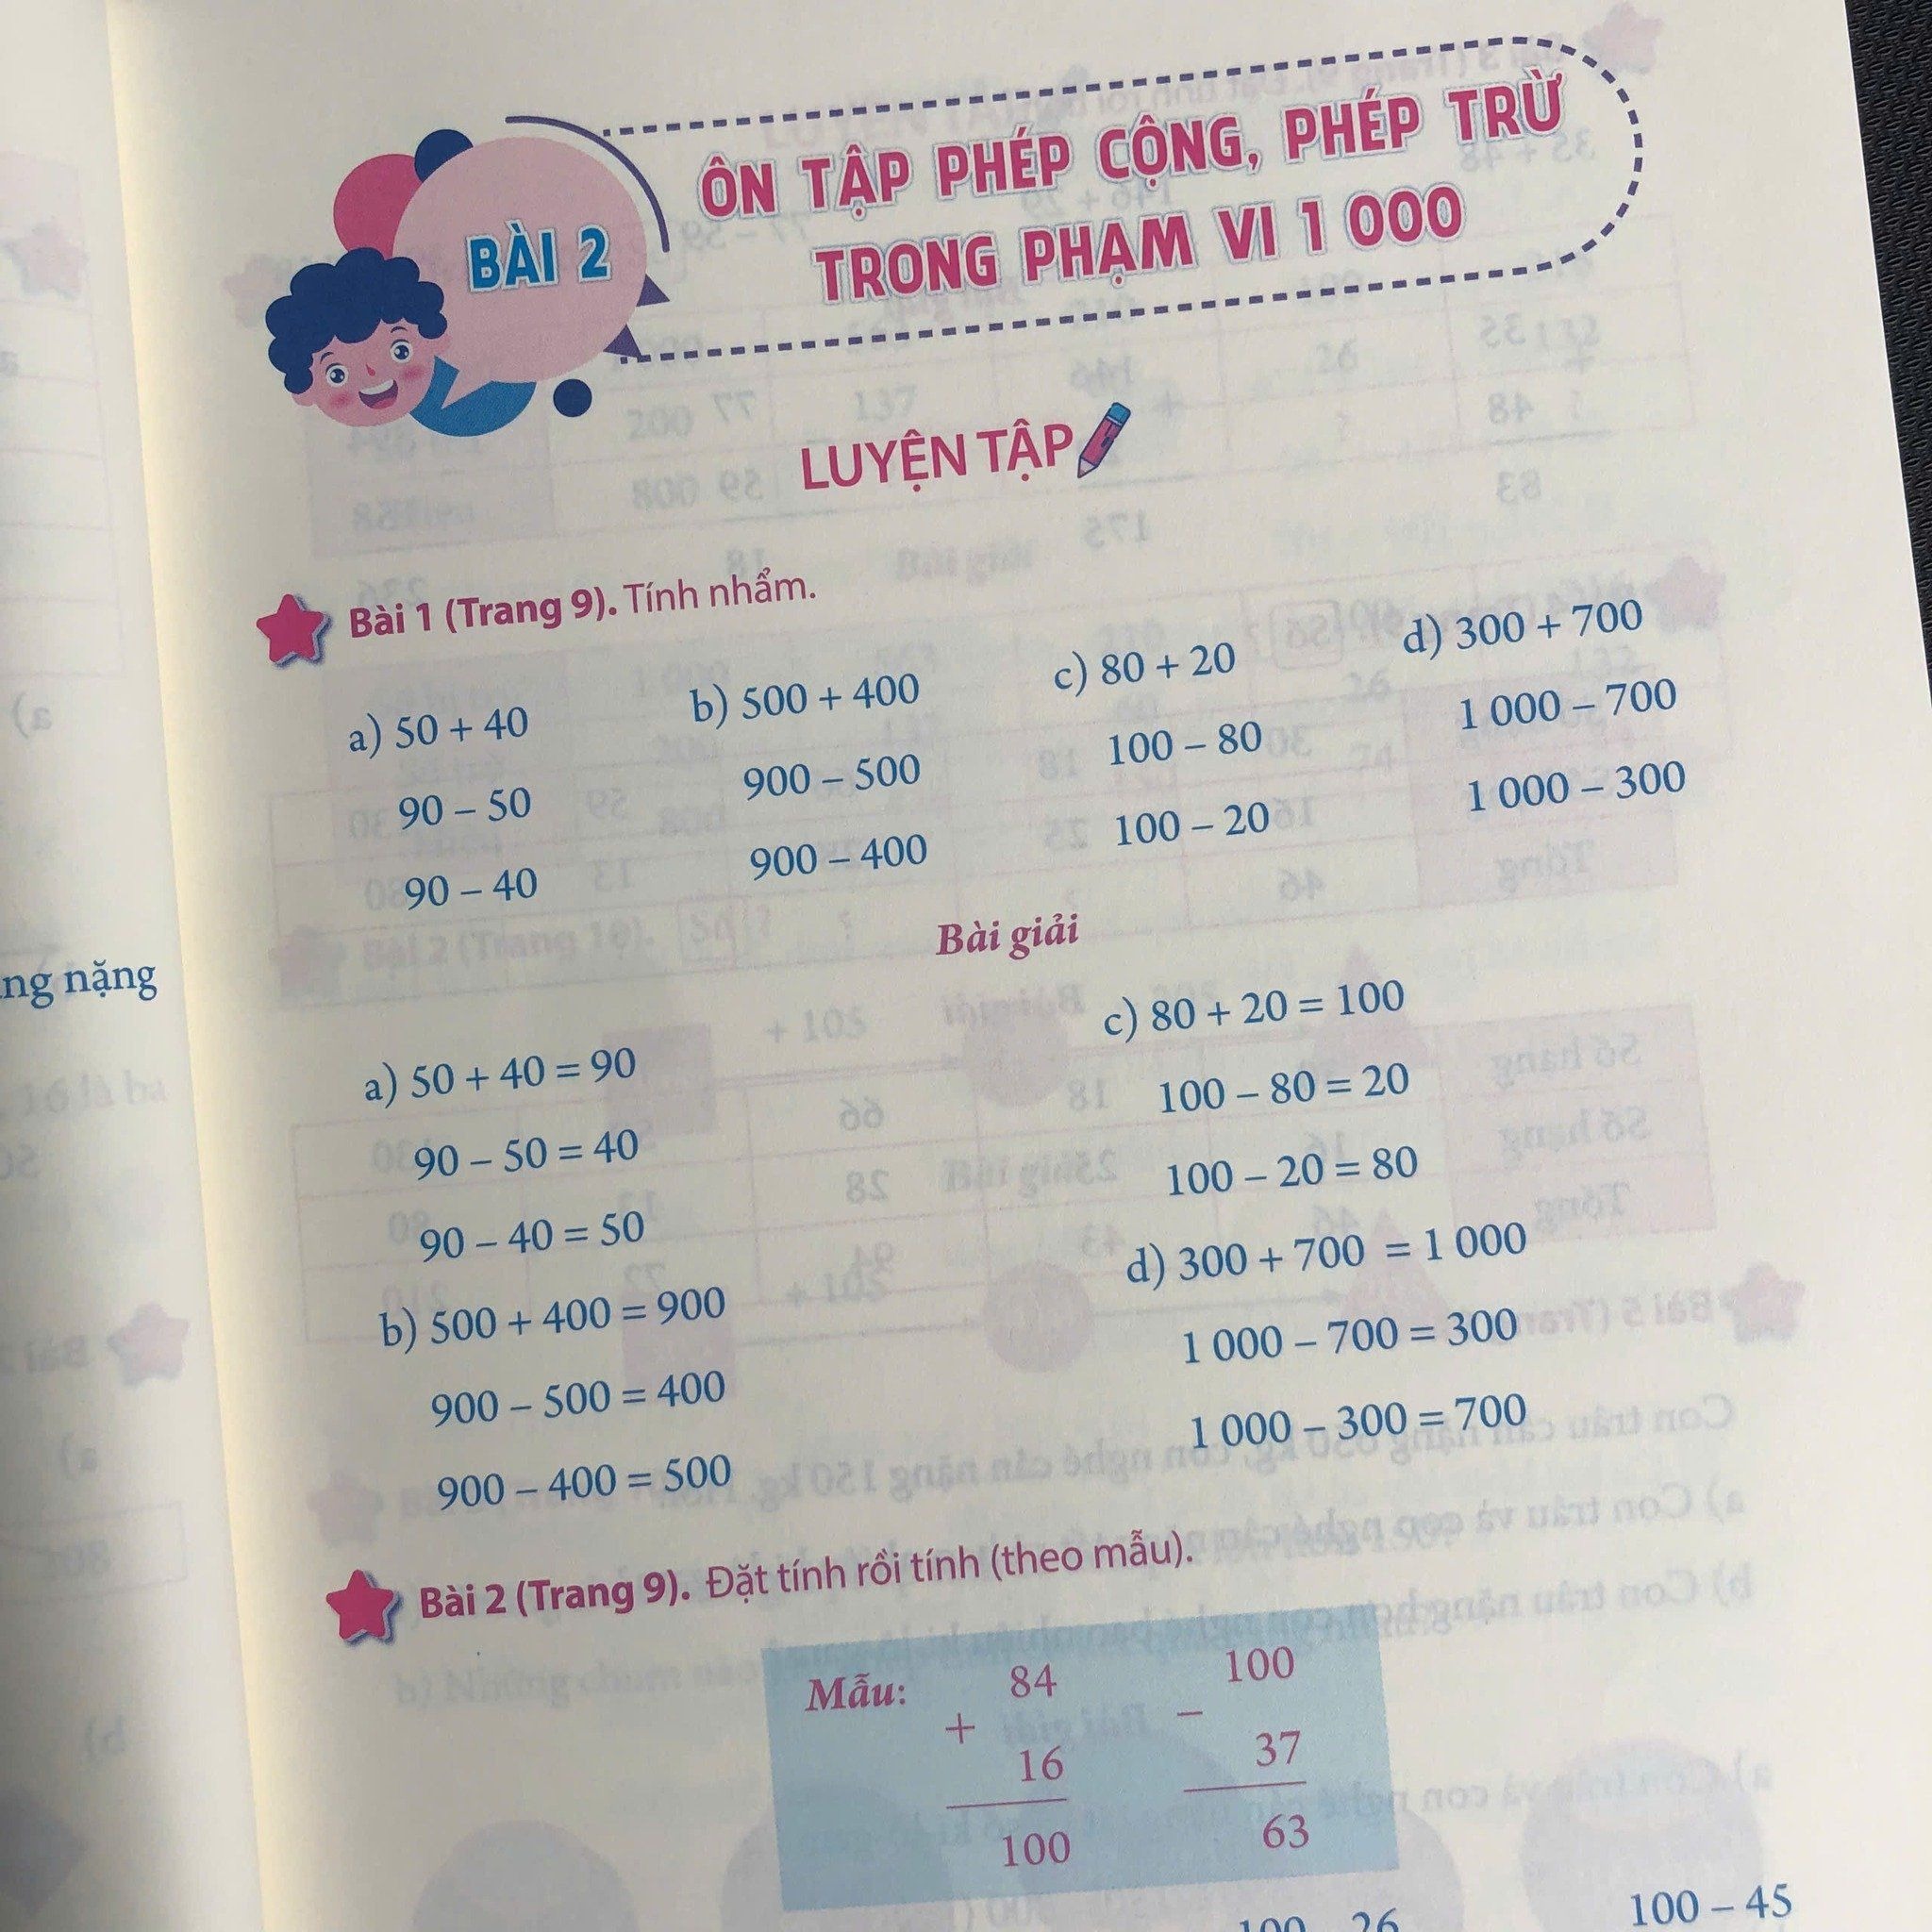 BÀI 2
ÔN TẬP PHÉP CỘNG, PHÉP TRỪ
TRONG PHẠM VI 1 000
LUYỆN TẬP
Bài 1 (Trang 9). Tính nhẩm.
a) 50 + 40 b) 500 + 400 c) 80 + 20 d) 300 + 700
90 – 50 900 – 500 100 – 80 1 000 – 700
90 – 40 900 – 400 100 – 20 1 000 – 300
Bài giải
a) 50 + 40 = 90
90 – 50 = 40
90 – 40 = 50
b) 500 + 400 = 900
900 – 500 = 400
900 – 400 = 500
c) 80 + 20 = 100
100 – 80 = 20
100 – 20 = 80
d) 300 + 700 = 1 000
1 000 – 700 = 300
1 000 – 300 = 700
nặng
Bài 2 (Trang 9). Đặt tính rồi tính (theo mẫu).
Mẫu:
84
+
16
100
100
–
37
63
100 – 45